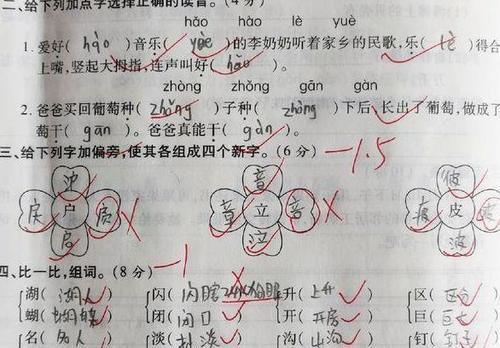 二、给下列加点字选择正确的读音。(4分)
hǎo hào lè yuè
1. 爱好( hào )音乐( yuè )的李奶奶听着家乡的民歌,乐( lè )得合
上嘴,竖起大拇指,连声叫好( hǎo )。
zhòng zhǒng gān gàn
2. 爸爸买回葡萄种( zhǒng )子种( zhòng )下后,长出了葡萄,做成了
萄干( gān )。爸爸真能干( gàn )。
三、给下列字加偏旁,使其各组成四个新字。(6分) -1.5
沪 音 彼
户 立 皮
启 泣 波
四、比一比,组词。(8分) -1
湖( 湖人 ) 闪( ) 升( 上升 ) 区( 区分 )
蝴( 蝴蝶 ) 闭( 闭口 ) 开( 开房 ) 巨( 巨大 )
名( 名人 ) 淡( ) 沟( 山沟 ) 钉( 钉子 )